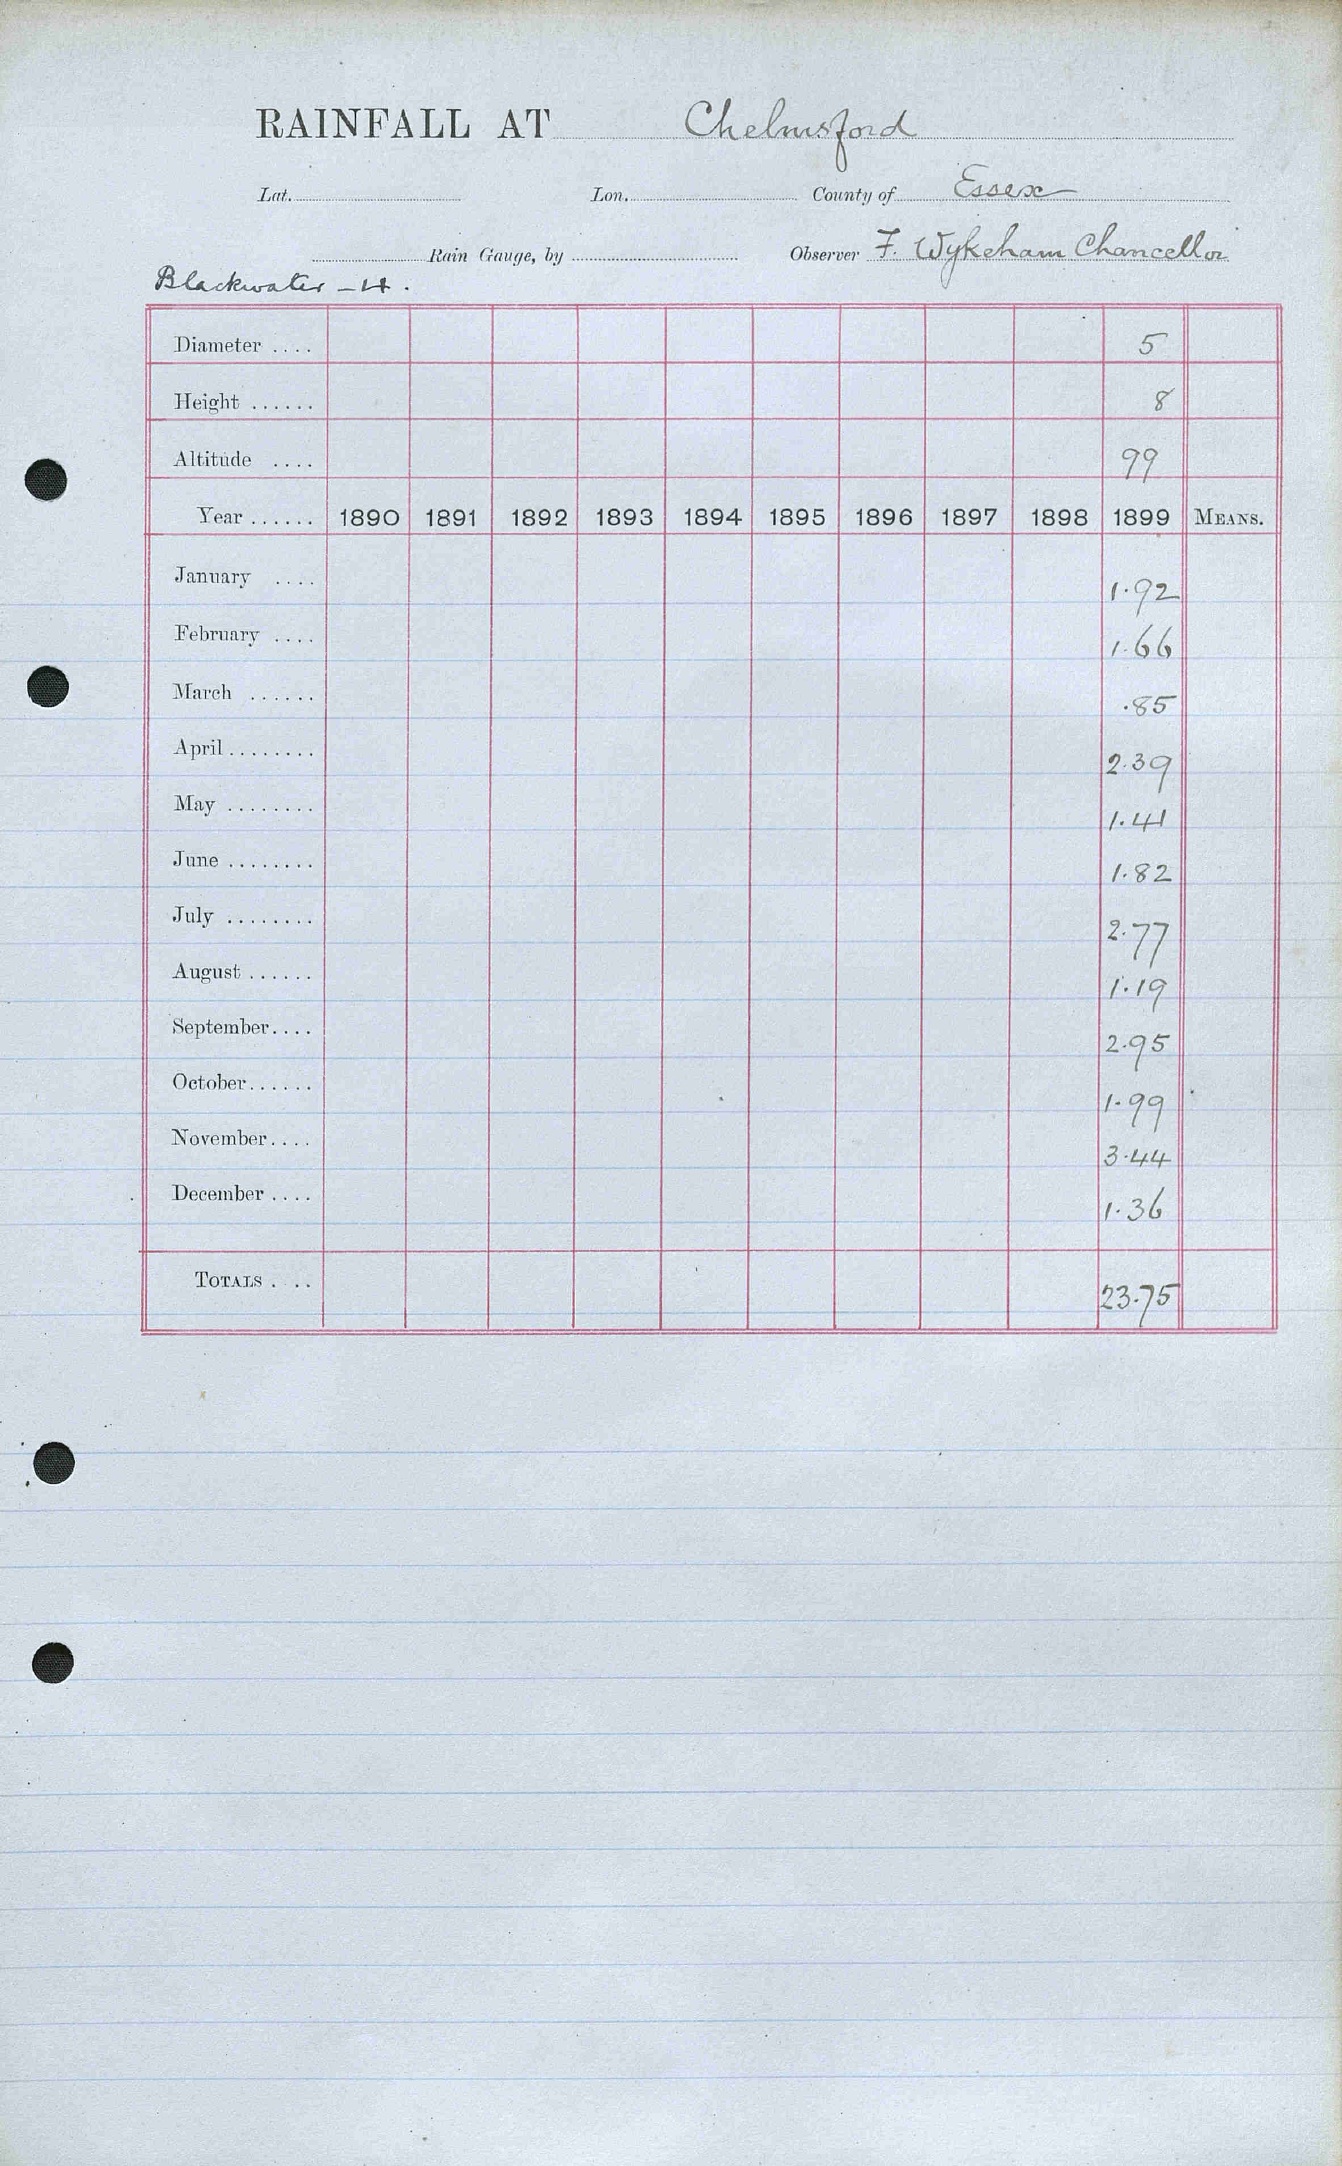 RAINFALL AT Chelmsford
Lat. Lon. County of Essex
Rain Gauge, by Observer F. Wykeham Chancellor
Blackwater – 4.
Diameter .... 5
Height ...... 8
Altitude .... 99
Year ...... 1890 1891 1892 1893 1894 1895 1896 1897 1898 1899 MEANS.
January .... 1.92
February .... 1.66
March ...... .85
April ........ 2.39
May ........ 1.41
June ........ 1.82
July ........ 2.77
August ...... 1.19
September .... 2.95
October ...... 1.99
November .... 3.44
December .... 1.36
TOTALS . .. 23.75